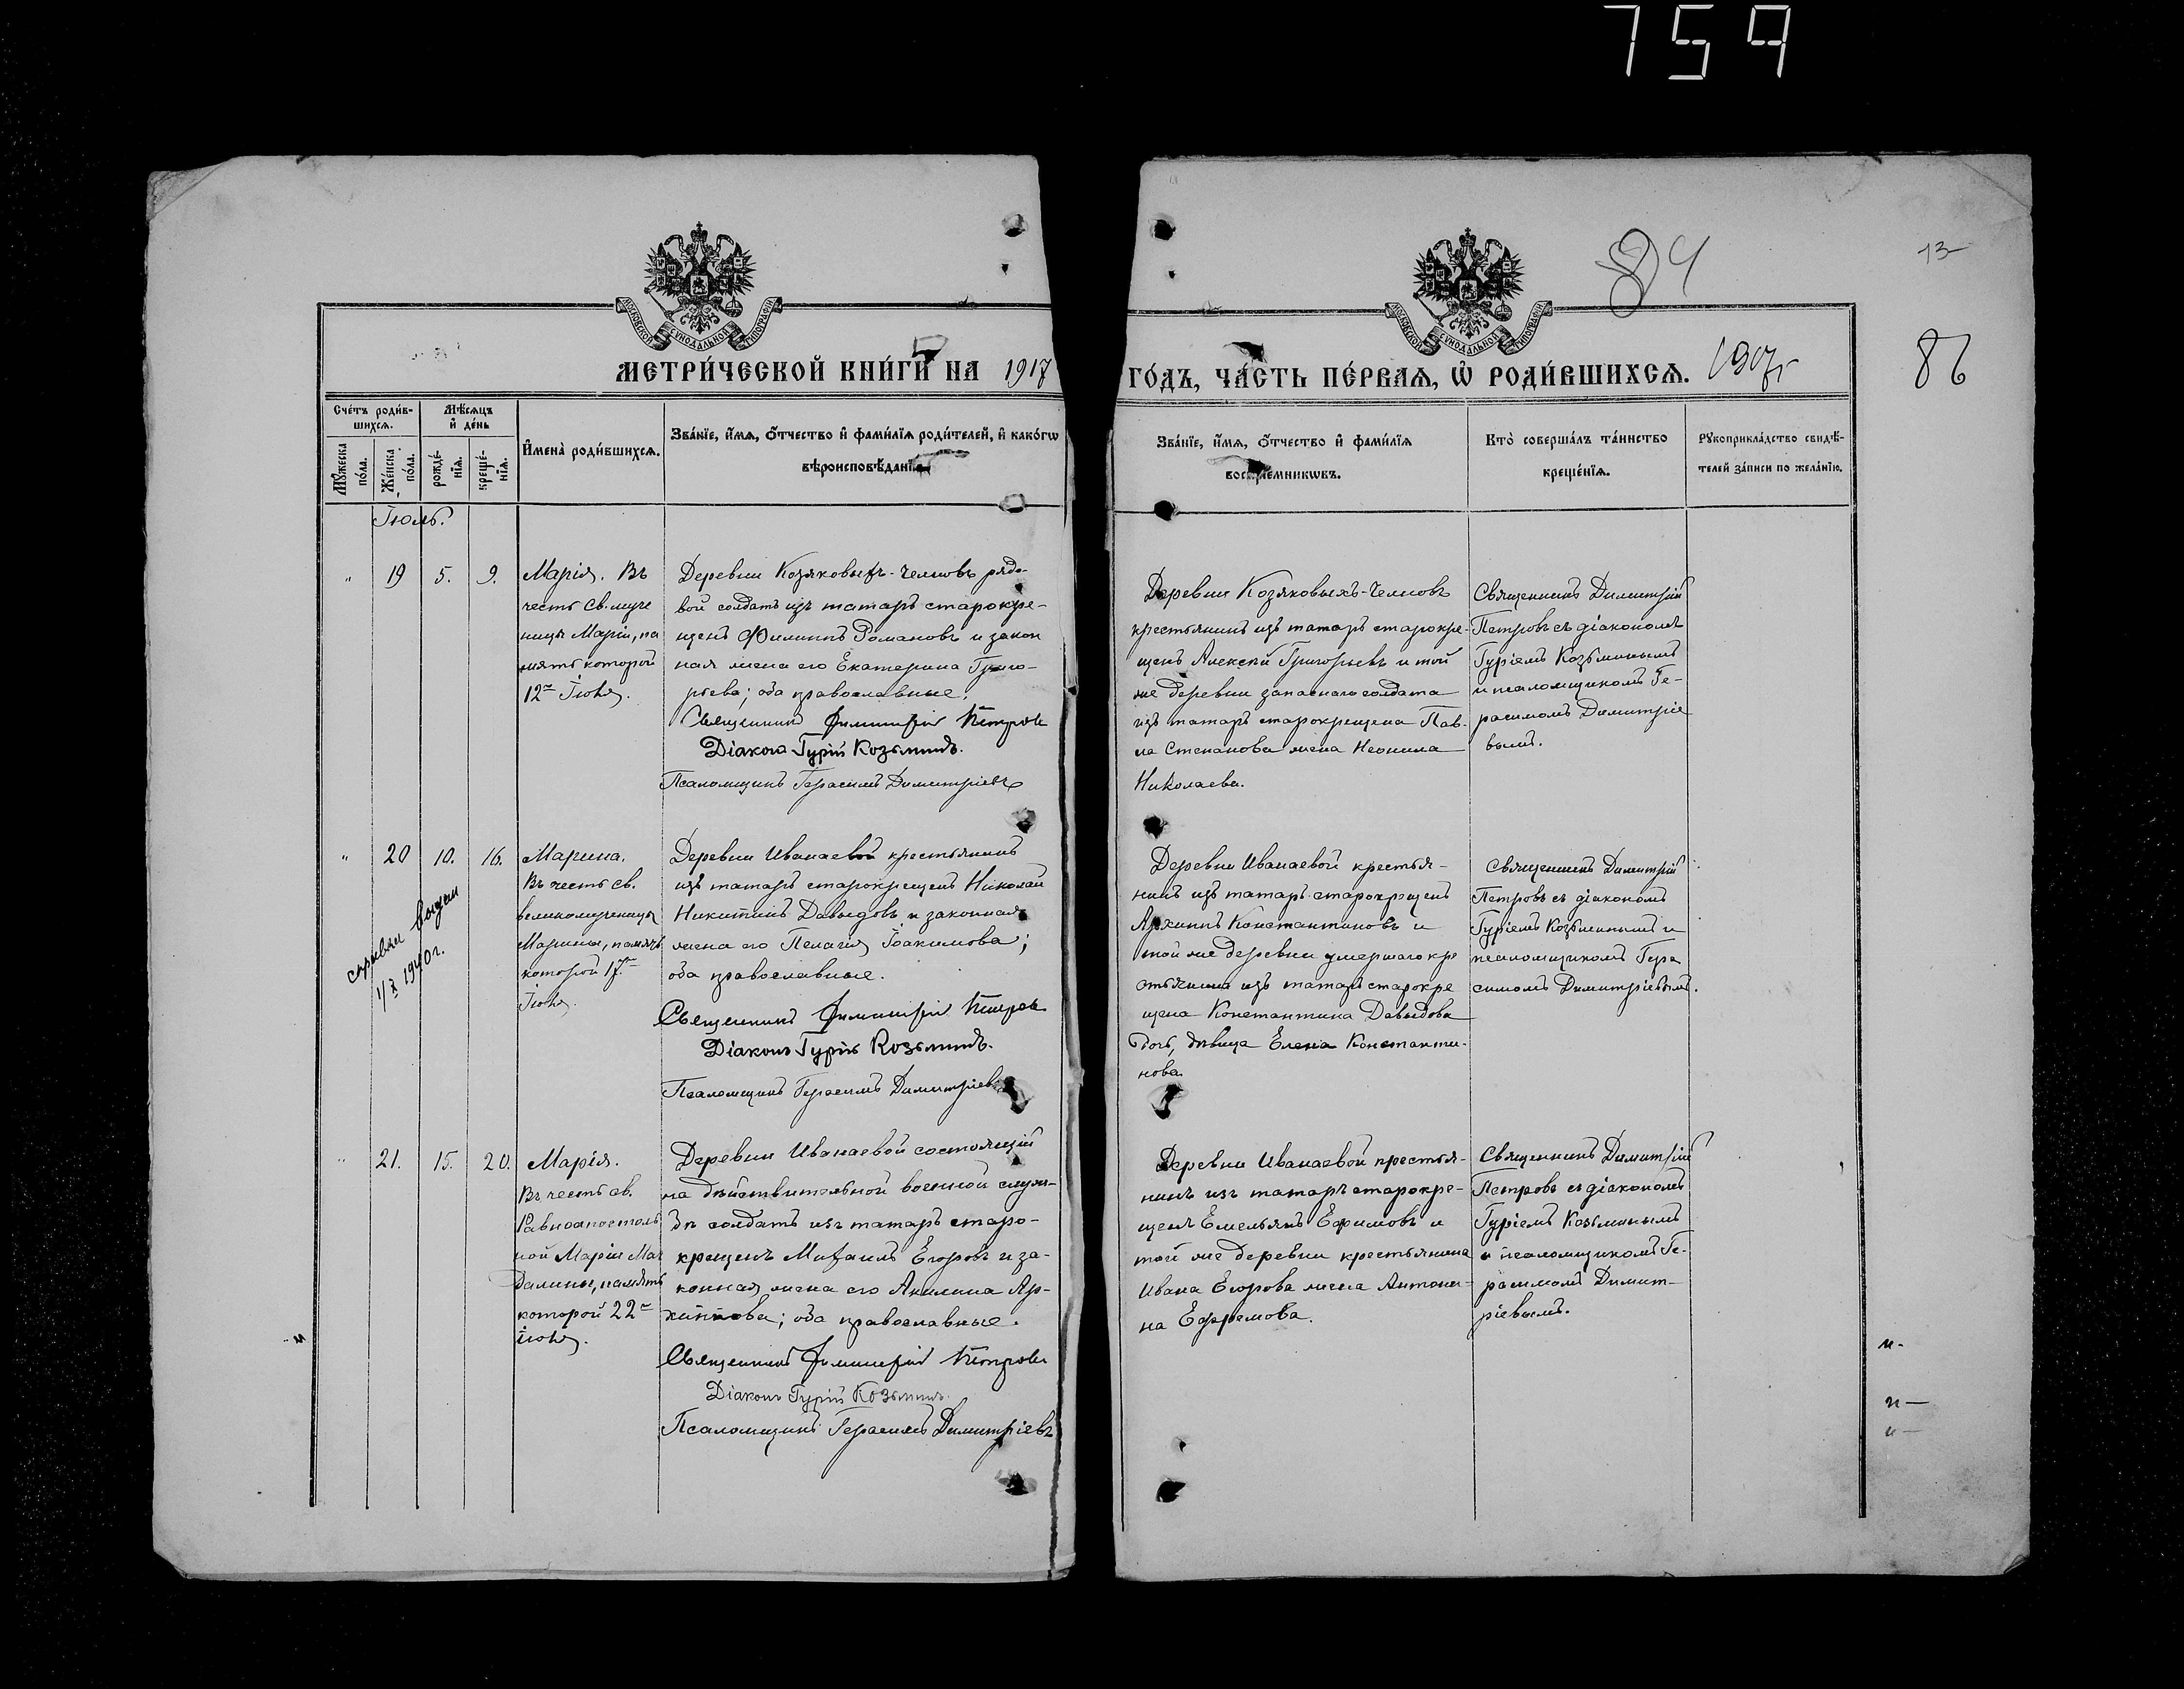 759
84
13
86
МОСКОВСКОЙ СѴНОДАЛЬНОЙ ТИПОГРАФІИ
МОСКОВСКОЙ СѴНОДАЛЬНОЙ ТИПОГРАФІИ
МЕТРИ́ЧЕСКОЙ КНИ́ГИ НА 1917
ГО́ДЪ, ЧА́СТЬ ПЕ́РВАЯ, Ѡ РОДИ́ВШИХСЯ.
Сче́тъ роди́в-
шихся.
Мꙋ́жеска
по́ла.
Же́нска
по́ла.
Мѣ́сяцъ
и҆ де́нь
рожде́-
нїя.
креще́-
нїя.
И҆мена̀ роди́вшихся.
Зва́нїе, и҆́мя, ѻ҆́тчество и҆ фами́лїя роди́телей, и҆ како́гѡ
вѣроисповѣ́данїя.
Зва́нїе, и҆́мя, ѻ҆́тчество и҆ фами́лїя
воспрїе́мникѡвъ.
Кто̀ соверша́лъ та́инство
креще́нїя.
Рꙋкоприкла́дство свидѣ́-
телей за́писи по жела́нїю.
Іюль.
" 19 5. 9.
Марія. Въ
честь св. муче
ницы Маріи, па
мять которой
12го Іюля.
Деревни Козяковыхъ-Челновъ рядо-
вой солдатъ изъ татаръ старокре-
щенъ Филиппъ Романовъ и закон
ная жена его Екатерина Григо-
рьева; оба православные.
Священникъ Димитрій Петровъ
Діаконъ Гурій Козьминъ.
Псаломщикъ Герасимъ Димитріевъ
Деревни Козяковыхъ-Челновъ
крестьянинъ изъ татаръ старокре-
щенъ Алексѣй Григорьевъ и той
же деревни запаснаго солдата
изъ татаръ старокрещена Пав-
ла Степанова жена Неонила
Николаева.
Священникъ Димитрій
Петровъ съ діакономъ
Гуріемъ Козьминымъ
и псаломщикомъ Ге-
расимомъ Димитріе
вымъ.
" 20 10. 16.
1/X 1940 г.
Марина.
Въ честь св.
великомученицы
Марины, память
которой 17го
Іюля.
Деревни Иванаевой крестьянинъ
изъ татаръ старокрещенъ Николай
Никитинъ Давыдовъ и законная
жена его Пелагія Іоакимова;
оба православные.
Священникъ Димитрій Петровъ
Діаконъ Гурій Козьминъ.
Псаломщикъ Герасимъ Димитріевъ
Деревни Иванаевой крестья-
нинъ изъ татаръ старокрещенъ
Архиппъ Константиновъ и
той же деревни умершаго кре
стьянина изъ татаръ старокре
щена Константина Давыдова
дочь, дѣвица Елена Константи-
нова.
Священникъ Димитрій
Петровъ съ діакономъ
Гуріемъ Козьминымъ и
псаломщикомъ Гера
симомъ Димитріевымъ.
" 21. 15. 20.
Марія.
Въ честь св.
Равноапостоль
ной Маріи Маг
далины, память
которой 22го
Іюля.
Деревни Иванаевой состоящій
на дѣйствительной военной служ-
бѣ солдатъ изъ татаръ старо-
крещенъ Михаилъ Егоровъ и за-
конная жена его Акилина Ар-
хиппова; оба православные.
Священникъ Димитрій Петровъ
Діаконъ Гурій Козьминъ.
Псаломщикъ Герасимъ Димитріевъ
Деревни Иванаевой крестья-
нинъ изъ татаръ старокре-
щенъ Емельянъ Ефимовъ и
той же деревни крестьянина
Ивана Егорова жена Антони-
на Ефремова.
Священникъ Димитрій
Петровъ съ діакономъ
Гуріемъ Козьминымъ
и псаломщикомъ Ге-
расимомъ Димит-
ріевымъ.